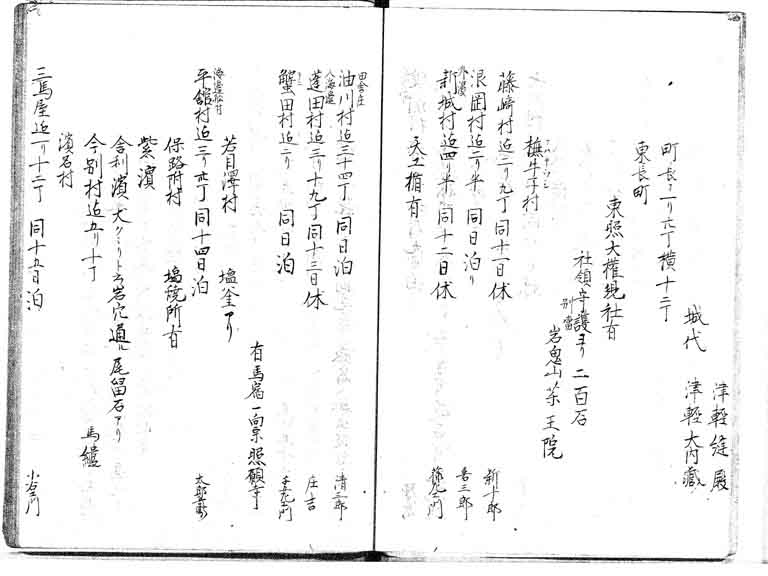 津軽縫殿
城代 津軽大内蔵
町長サ一り六丁横十二丁
東長町
東照大権現社有
社領守護ヨリ二百石
別當
岩鬼山薬王院
橅牛子村
藤崎村迄二り九丁 同十一日休 新十郎
浪岡村迄二り半 同日泊り 吉三郎
外濱
新城村迄四り半 同十二日休
天工橋有
田舎庄
油川村迄三十四丁 同日泊 清三郎
海邊
蓬田村迄三り十九丁 同十三日休 庄吉
蟹田村迄二り 同日泊
有馬宿一向宗照願寺
若目澤村 塩釜アリ
海邊
平舘村迄三り 同十四日泊
保路附村 塩焼所有
紫濱
舎利濱大クヽリト云岩穴通ル尾留石アリ
今別村迄五り十丁
濱名村
三馬屋迄一り十二丁 同十五日泊